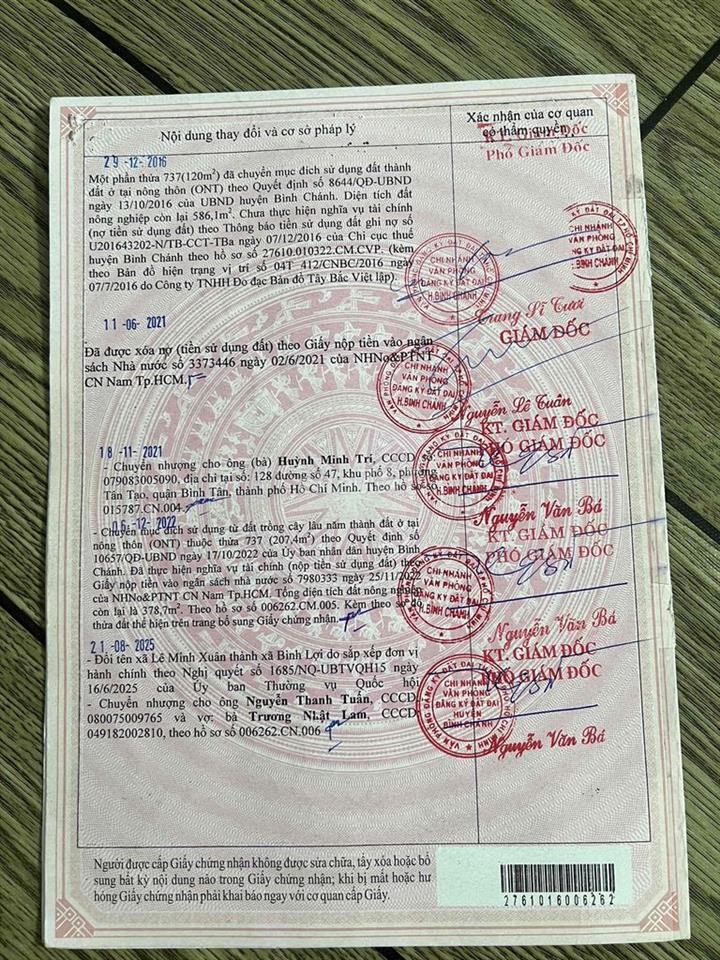 Nội dung thay đổi và cơ sở pháp lý
Xác nhận của cơ quan
có thẩm quyền
KT. Giám Đốc
Phó Giám Đốc
29-12-2016
Một phần thửa 737(120m²) đã chuyển mục đích sử dụng đất thành
đất ở tại nông thôn (ONT) theo Quyết định số 8644/QĐ-UBND
ngày 13/10/2016 của UBND huyện Bình Chánh. Diện tích đất
nông nghiệp còn lại 586,1m². Chưa thực hiện nghĩa vụ tài chính
(nợ tiền sử dụng đất) theo Thông báo tiền sử dụng đất ghi nợ số
U201643202-N/TB-CCT-TBa ngày 07/12/2016 của Chi cục thuế
huyện Bình Chánh theo hồ sơ số 27610.010322.CM.CVP. (kèm
theo Bản đồ hiện trạng vị trí số 04T 412/CNBC/2016 ngày
07/7/2016 do Công ty TNHH Đo đạc Bản đồ Tây Bắc Việt lập)
CHI NHÁNH
VĂN PHÒNG
ĐĂNG KÝ ĐẤT ĐAI
H.BÌNH CHÁNH
CHI NHÁNH
VĂN PHÒNG
H.BÌNH CHÁNH
Trang Sĩ Tươi
GIÁM ĐỐC
11-06-2021
Đã được xóa nợ (tiền sử dụng đất) theo Giấy nộp tiền vào ngân
sách Nhà nước số 3373446 ngày 02/6/2021 của NHNo&PTNT
CN Nam Tp.HCM.
CHI NHÁNH
VĂN PHÒNG
ĐĂNG KÝ ĐẤT ĐAI
H.BÌNH CHÁNH
Nguyễn Lê Tuân
KT. GIÁM ĐỐC
PHÓ GIÁM ĐỐC
18-11-2021
- Chuyển nhượng cho ông (bà) Huỳnh Minh Trí, CCCD số:
079083005090, địa chỉ tại số: 128 đường số 47, khu phố 8, phường
Tân Tạo, quận Bình Tân, thành phố Hồ Chí Minh. Theo hồ sơ số
015787.CN.004.
CHI NHÁNH
VĂN PHÒNG
ĐĂNG KÝ ĐẤT ĐAI
H.BÌNH CHÁNH
Nguyễn Văn Bá
KT. GIÁM ĐỐC
PHÓ GIÁM ĐỐC
06-12-2022
- Chuyển mục đích sử dụng từ đất trồng cây lâu năm thành đất ở tại
nông thôn (ONT) thuộc thửa 737 (207,4m²) theo Quyết định số
10657/QĐ-UBND ngày 17/10/2022 của Ủy ban nhân dân huyện Bình
Chánh. Đã thực hiện nghĩa vụ tài chính (nộp tiền sử dụng đất) theo
Giấy nộp tiền vào ngân sách nhà nước số 7980333 ngày 25/11/2022
của NHNo&PTNT CN Nam Tp.HCM. Tổng diện tích đất nông nghiệp
còn lại là 378,7m². Theo hồ sơ số 006262.CM.005. Kèm theo sơ đồ
thửa đất thể hiện trên trang bổ sung Giấy chứng nhận.
CHI NHÁNH
VĂN PHÒNG
ĐĂNG KÝ ĐẤT ĐAI
H.BÌNH CHÁNH
Nguyễn Văn Bá
KT. GIÁM ĐỐC
PHÓ GIÁM ĐỐC
21-08-2025
- Đổi tên xã Lê Minh Xuân thành xã Bình Lợi do sắp xếp đơn vị
hành chính theo Nghị quyết số 1685/NQ-UBTVQH15 ngày
16/6/2025 của Ủy ban Thường vụ Quốc hội
- Chuyển nhượng cho ông Nguyễn Thanh Tuấn, CCCD
080075009765 và vợ: bà Trương Nhật Lam, CCCD
049182002810, theo hồ sơ số 006262.CN.006
CHI NHÁNH
VĂN PHÒNG
ĐĂNG KÝ ĐẤT ĐAI
HUYỆN
BÌNH CHÁNH
Nguyễn Văn Bá
Người được cấp Giấy chứng nhận không được sửa chữa, tẩy xóa hoặc bổ
sung bất kỳ nội dung nào trong Giấy chứng nhận; khi bị mất hoặc hư
hỏng Giấy chứng nhận phải khai báo ngay với cơ quan cấp Giấy.
2761016006262